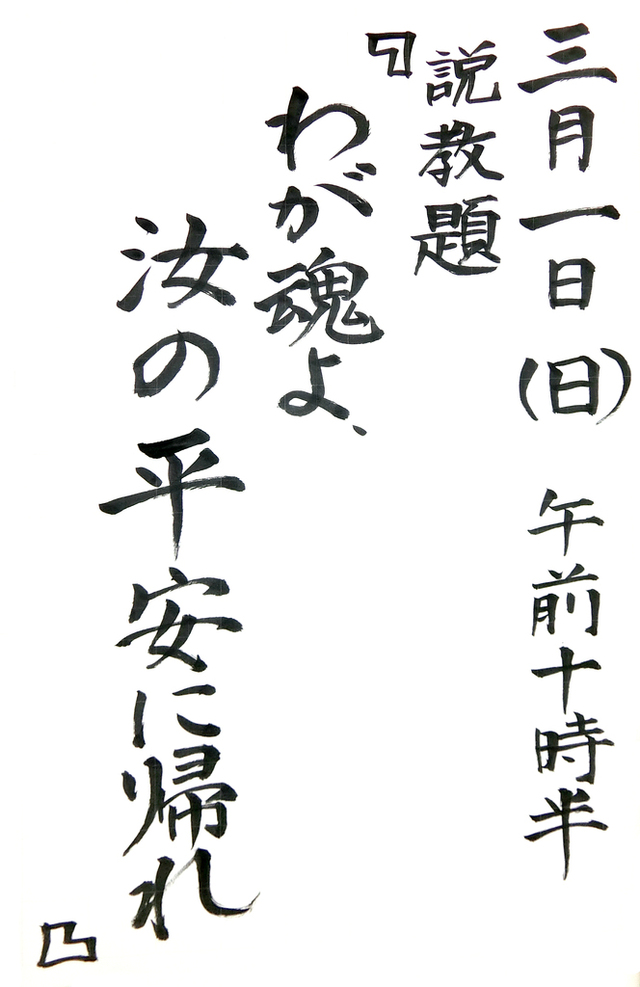 三月一日(日) 午前十時半
説教題
『わが魂よ、
汝の平安に帰れ』